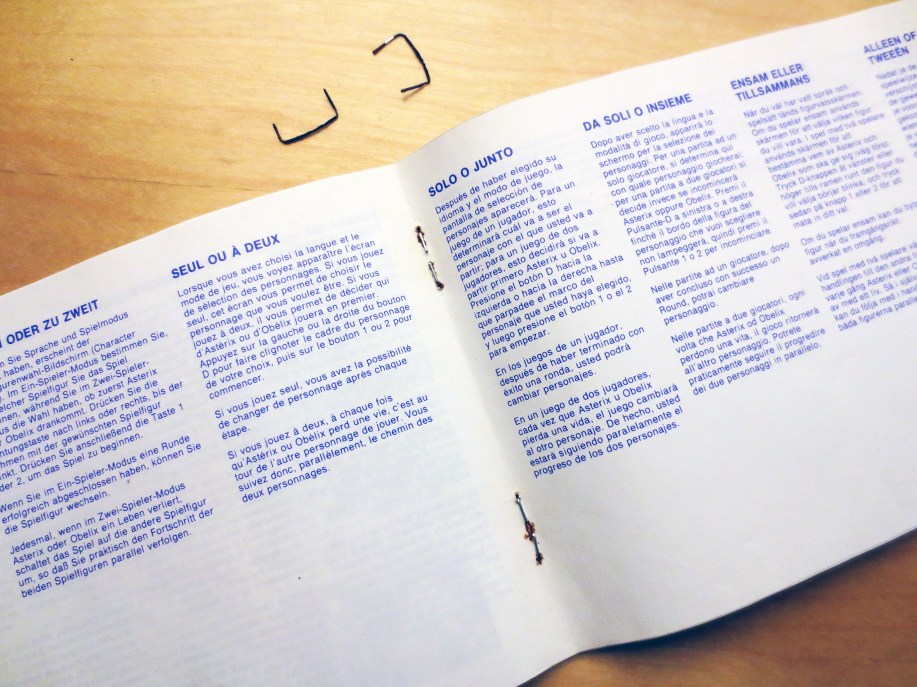 ODER ZU ZWEIT
Sie Sprache und Spielmodus
haben, erscheint der
Figurenwahl-Bildschirm (Character
im Ein-Spieler-Modus bestimmen Sie,
welcher Spielfigur Sie das Spiel
während Sie im Zwei-Spieler-
die Wahl haben, ob zuerst Asterix
Obelix drankommt. Drücken Sie die
nach links oder rechts, bis der
mit der gewünschten Spielfigur
Drücken Sie anschließend die Taste 1
der 2, um das Spiel zu beginnen.
Wenn Sie im Ein-Spieler-Modus eine Runde
erfolgreich abgeschlossen haben, können Sie
die Spielfigur wechseln.
Jedesmal, wenn im Zwei-Spieler-Modus
Asterix oder Obelix ein Leben verliert,
schaltet das Spiel auf die andere Spielfigur
um, so daß Sie praktisch den Fortschritt der
beiden Spielfiguren parallel verfolgen.
SEUL OU À DEUX
Lorsque vous avez choisi la langue et le
mode de jeu, vous voyez apparaître l'écran
de sélection des personnages. Si vous jouez
seul, cet écran vous permet de choisir le
personnage que vous voulez être. Si vous
jouez à deux, il vous permet de décider qui
d'Astérix ou d'Obélix jouera en premier.
Appuyez sur la gauche ou la droite du bouton
D pour faire clignoter le cadre du personnage
de votre choix, puis sur le bouton 1 ou 2 pour
commencer.
Si vous jouez seul, vous avez la possibilité
de changer de personnage après chaque
étape.
Si vous jouez à deux, à chaque fois
qu'Astérix ou Obélix perd une vie, c'est au
tour de l'autre personnage de jouer. Vous
suivez donc, parallèlement, le chemin des
deux personnages.
SOLO O JUNTO
Después de haber elegido su
idioma y el modo de juego, la
pantalla de selección de
personajes aparecerá. Para un
juego de un jugador, esto
determinará cuál va a ser el
personaje con el que usted va a
partir; para un juego de dos
jugadores, esto decidirá si va a
partir primero Asterix u Obelix.
Presione el botón D hacia la
izquierda o hacia la derecha hasta
que parpadee el marco del
personaje que usted haya elegido,
y luego presione el botón 1 o el 2
para empezar.
En los juegos de un jugador,
después de haber terminado con
éxito una ronda, usted podrá
cambiar personajes.
En un juego de dos jugadores,
cada vez que Asterix u Obelix
pierda una vida, el juego cambiará
al otro personaje. De hecho, usted
estará siguiendo paralelamente el
progreso de los dos personajes.
DA SOLI O INSIEME
Dopo aver scelto la lingua e la
modalità di gioco, apparirà lo
schermo per la selezione dei
personaggi. Per una partita ad un
solo giocatore, si determina qui
con quale personaggio giocherai;
per una partita a due giocatori si
decide invece se incomincerà
Asterix oppure Obelix. Premi il
Pulsante-D a sinistra o a destra
finché il bordo della figura del
personaggio che vuoi scegliere
non lampeggerà, quindi premi il
Pulsante 1 o 2 per incominciare.
Nelle partite ad un giocatore, dopo
aver concluso con successo un
Round, potrai cambiare
personaggio.
Nelle partite a due giocatori, ogni
volta che Asterix od Obelix
perdono una vita, il gioco ritornerà
all'altro personaggio. Potrete
praticamente seguire il progredire
dei due personaggi in parallelo.
ENSAM ELLER
TILLSAMMANS
När du väl har valt språk och
spelsätt tänds figurvalsskärmen.
Om du spelar ensam används
skärmen för att välja vilken figur
du vill vara. I spel med två spelare
används skärmen för att
bestämma vem av Asterix och
Obelix som ska ge sig iväg först.
Tryck D-knappen åt vänster eller
höger tills ramen runt den figur du
vill välja börjar blinka, och tryck
sedan på knapp 1 eller 2 för att
mata in ditt val.
Om du spelar ensam kan du byta
figur när du framgångsrikt
avverkat en omgång.
Vid spel med två spelare
handlingen till den andra
varje gång Asterix eller
av med ett liv. Så i själva
kan du följa med i
båda figurerna
ALLEEN OF
TWEEËN
Nadat je de